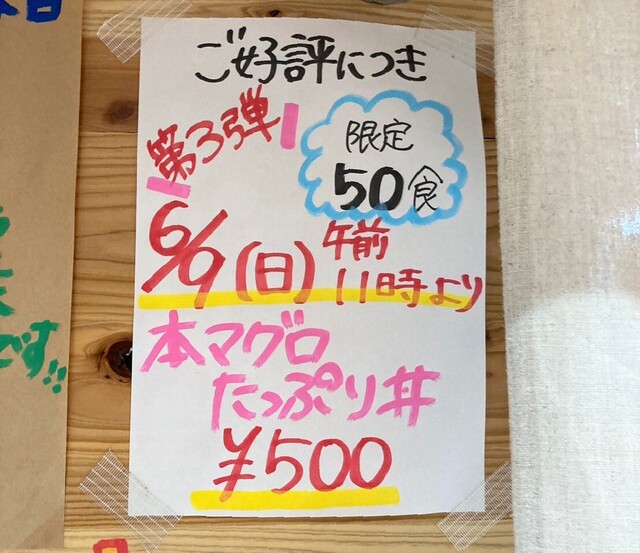 ご好評につき
第3弾
限定
50食
6/9(日) 午前
11時より
本マグロ
たっぷり丼
¥500
です!!